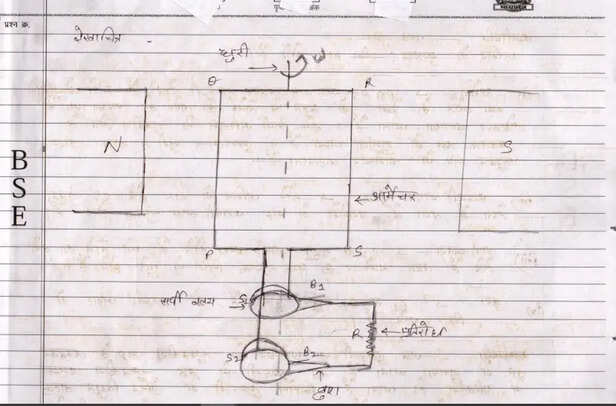 प्रश्न क्र.
रेखाचित्र -
धुरी
ω
Q
R
N
S
B
S
E
आर्मेचर
P
S
सर्पी वलय
S1
B1
R
प्रतिरोध
S2
B2
ब्रुश